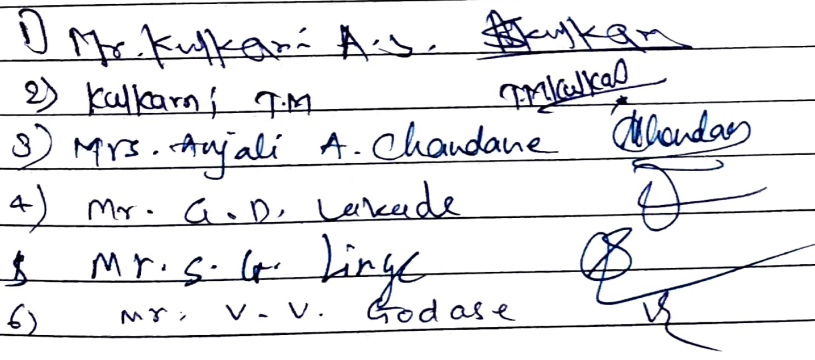 1) Mr. Kulkarni A.S.
2) Kulkarni T.M T.M.Kulkarni
3) Mrs. Anjali A. Chandane
4) Mr. G.D. Lakade
5 Mr. S. G. Linge
6) Mr. V. V. Godase